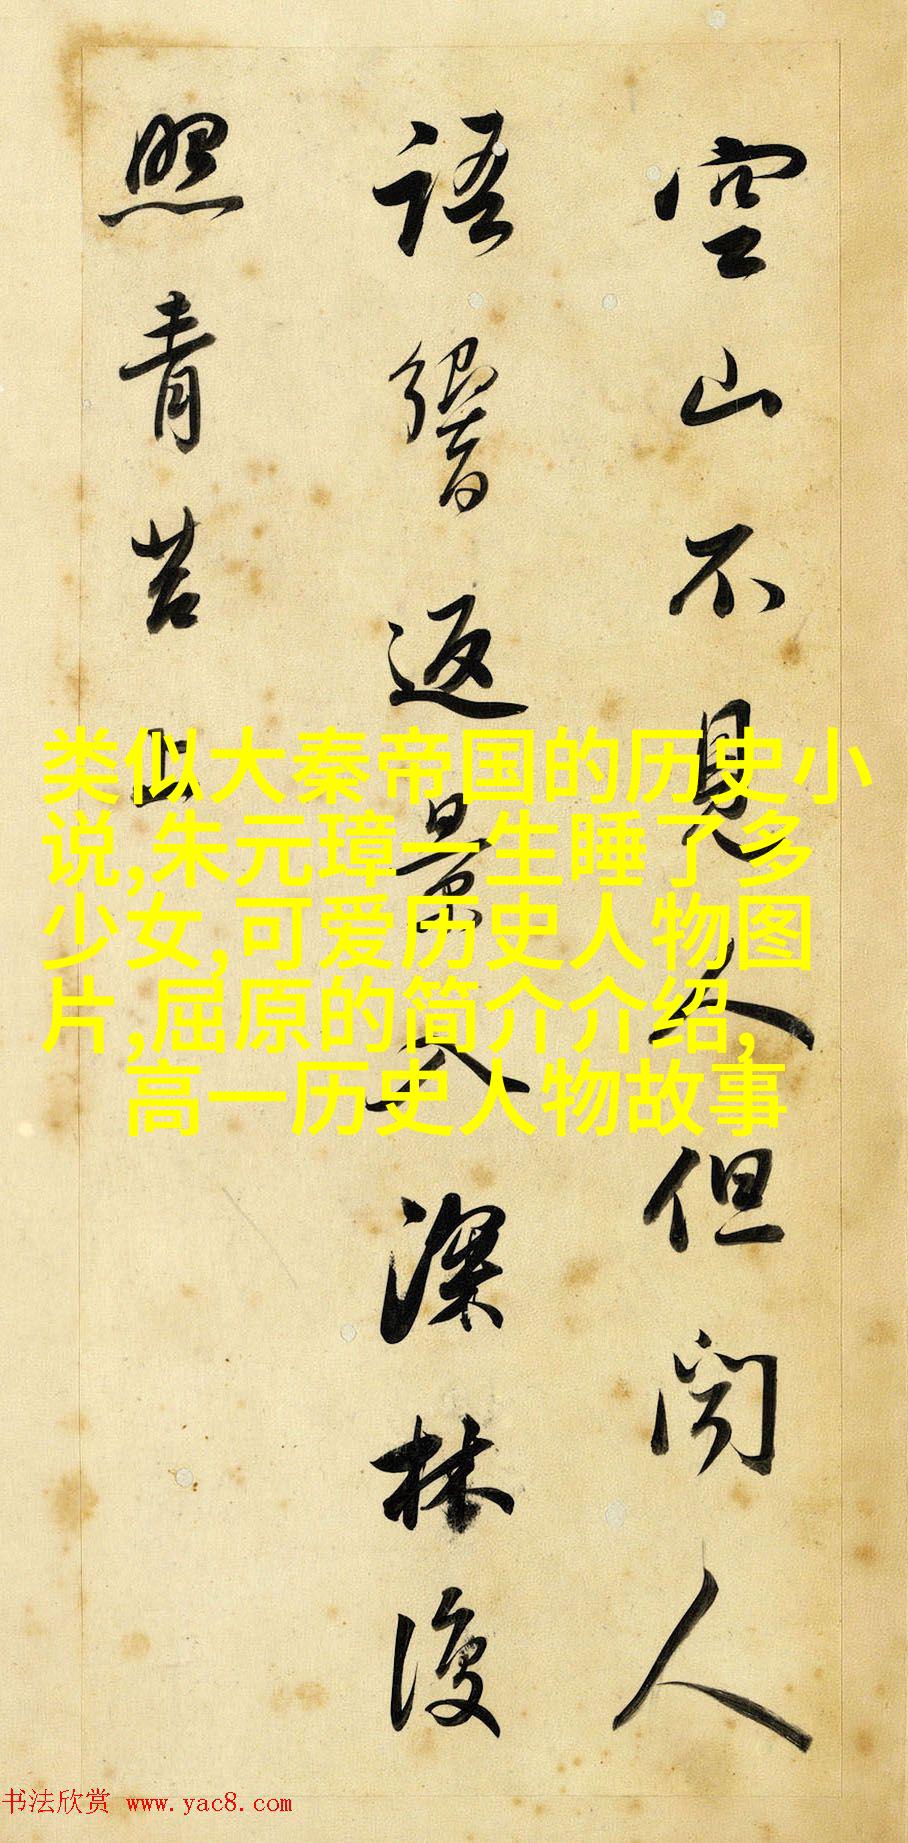 空山不見人但聞人
語響返景入深林復
照青苔上
类似大秦帝国的历史小
说,朱元璋一生睡了多
少女,可爱历史人物图
片,屈原的简介介绍,
高一历史人物故事
书法欣赏 www.yac8.com